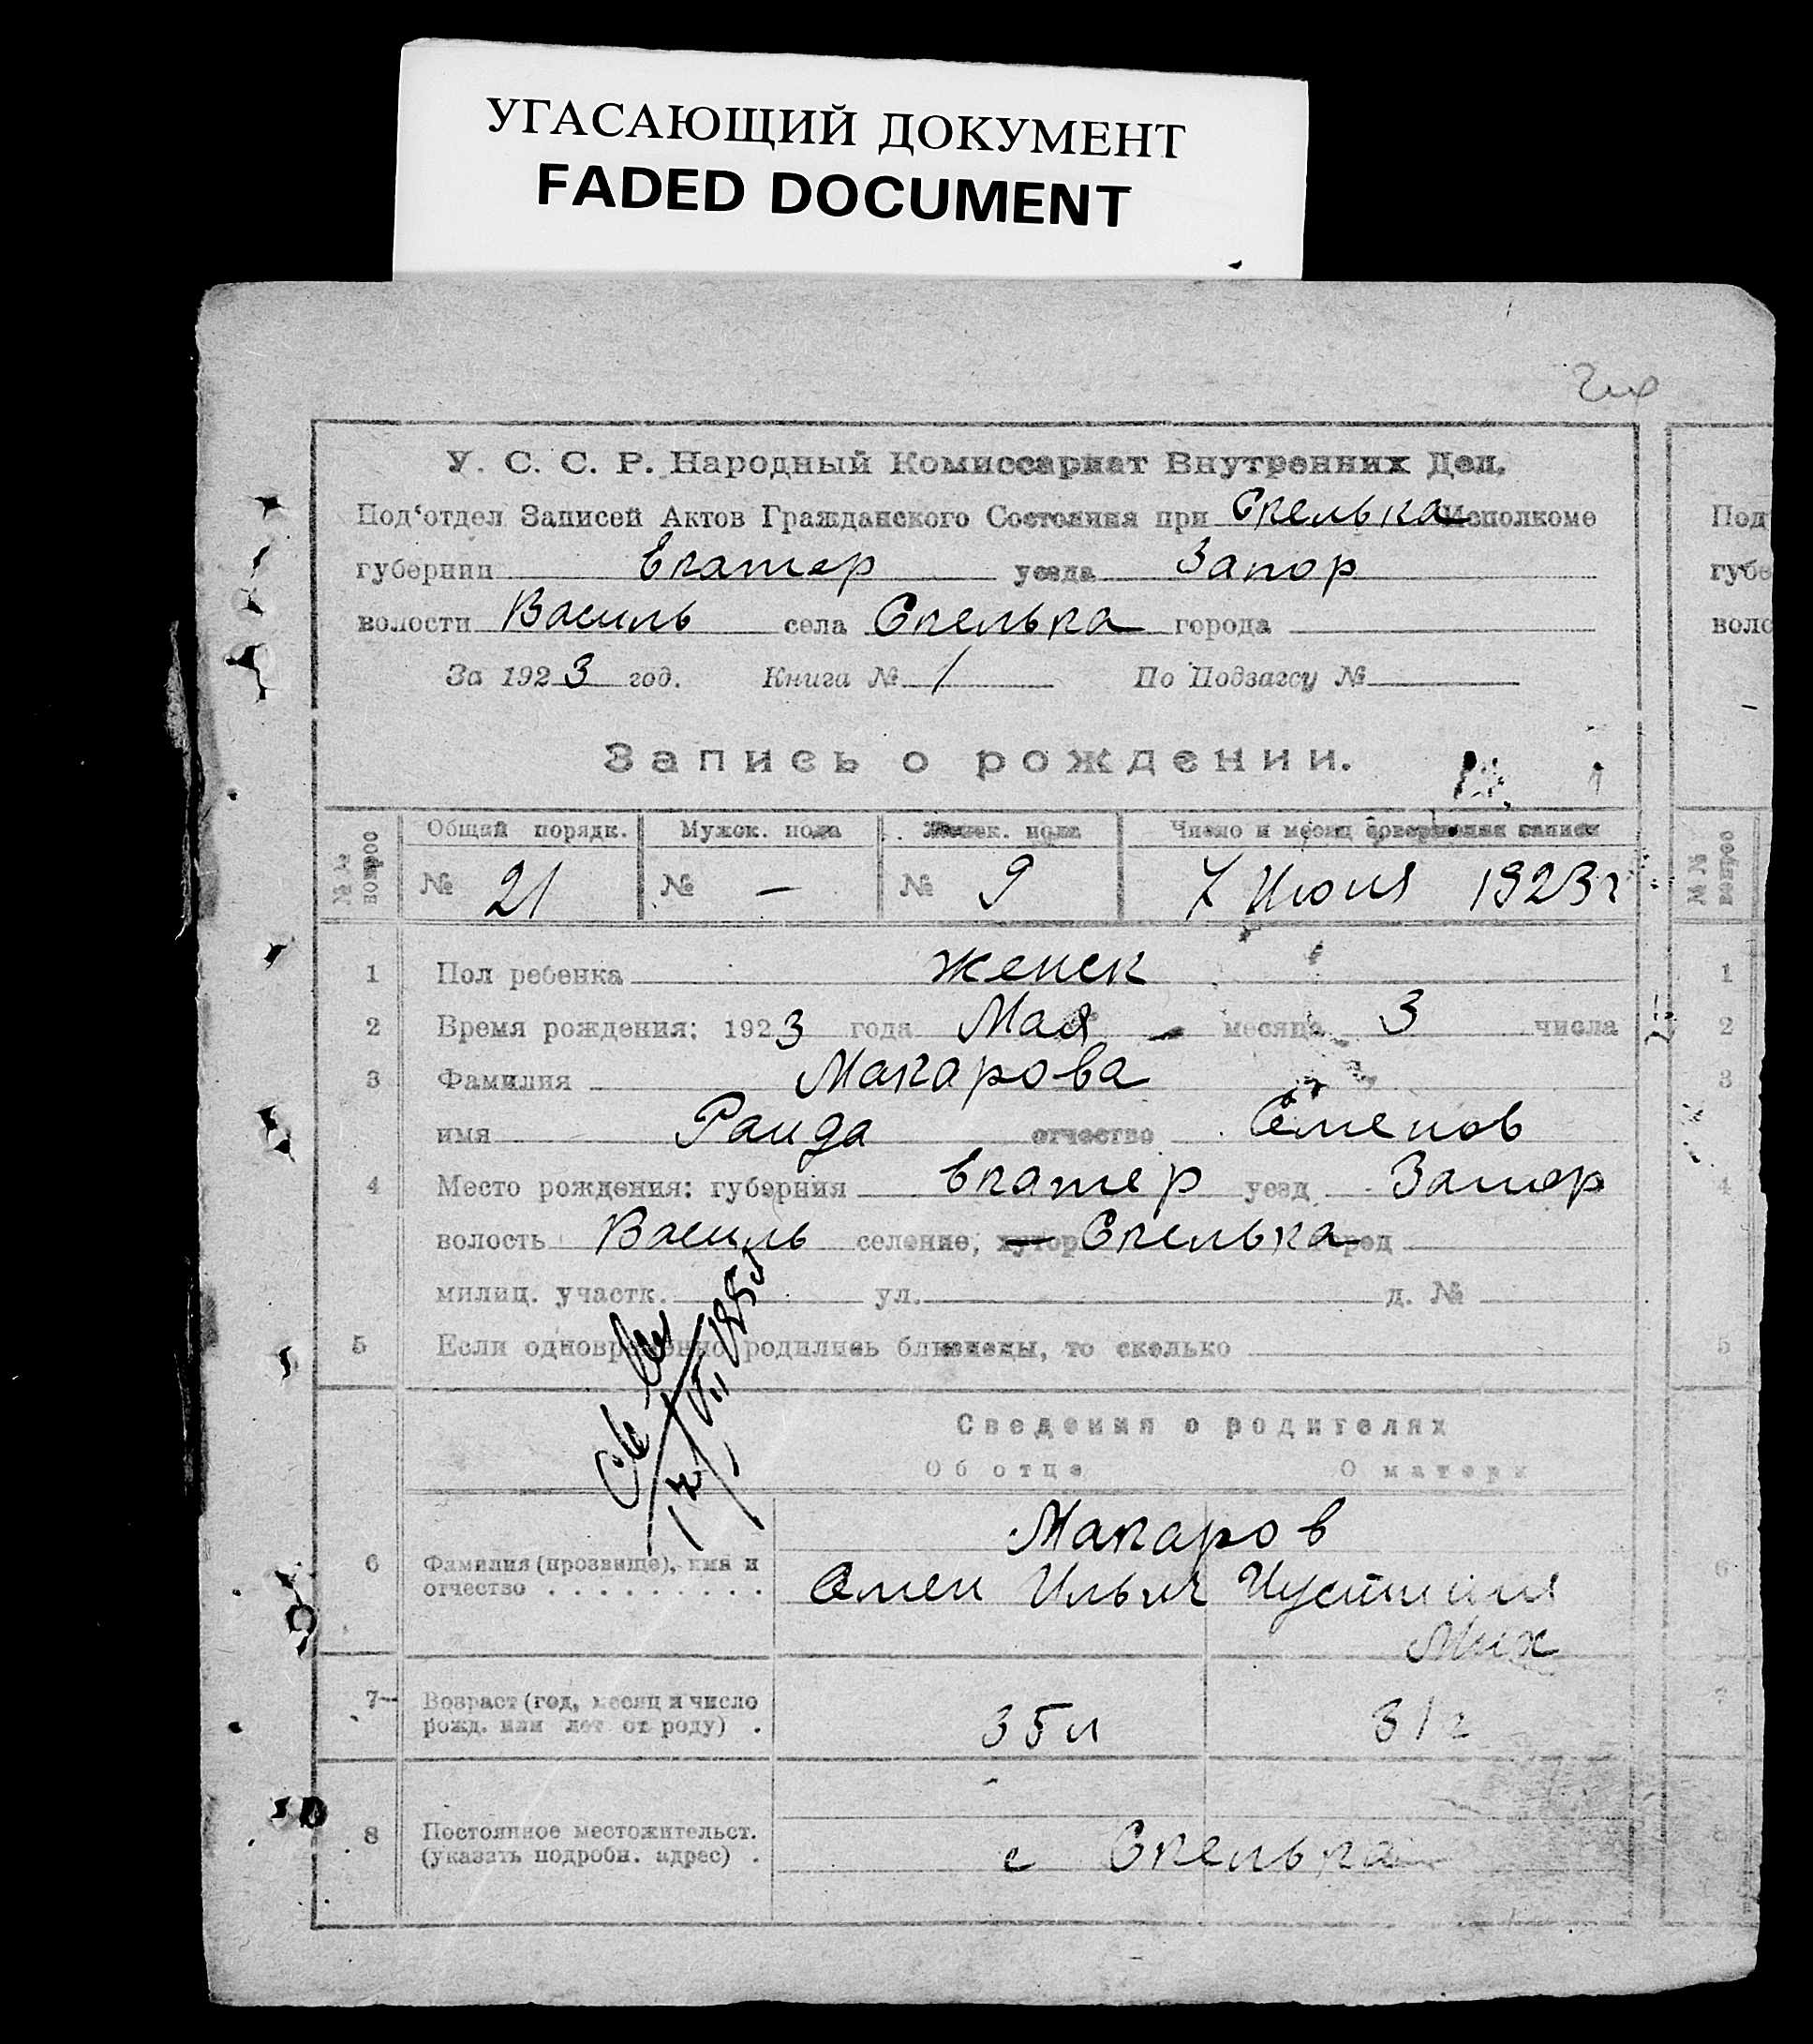 УГАСАЮЩИЙ ДОКУМЕНТ
FADED DOCUMENT
У. С. С. Р. Народный Комиссариат Внутренних Дел.
Под‘отдел Записей Актов Гражданского Состояния при Скелька Исполкоме
губернии Екатер уезда Запор
волости Василь села Скелька города
За 1923 год. Книга № 1 По Подзагсу №
Запись о рождении.
№ № вопрос Общий порядк. Мужск. пола Женск. пола Число и месяц совершения записи
№ 21 № — № 9 7 Июня 1923 г
1 Пол ребенка женск
2 Время рождения: 1923 года Мая месяца 3 числа
3 Фамилия Макарова
имя Раида отчество Семенов
4 Место рождения: губерния Екатер уезд Запор
волость Василь селение, хутор Скелька город
милиц. участк. ул. д. №
5 Если одновременно родились близнецы, то сколько
Сведения о родителях
Об отце О матери
Макаров
6 Фамилия (прозвище), имя и
отчество Семен Ильич Иустиния
Мих
7 Возраст (год, месяц и число
рожд. или лет от роду) 35 л 31 г
8 Постоянное местожительст.
(указать подробн. адрес) с Скелька
Под
губе
воло
№ № вопрос
1
2
3
4
5
6
7
8